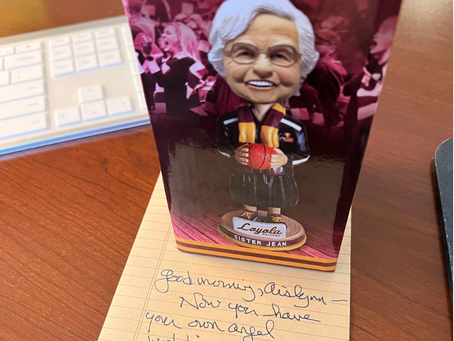 Loyola
SISTER JEAN
Good morning, Aislynn –
Now you have
your own angel